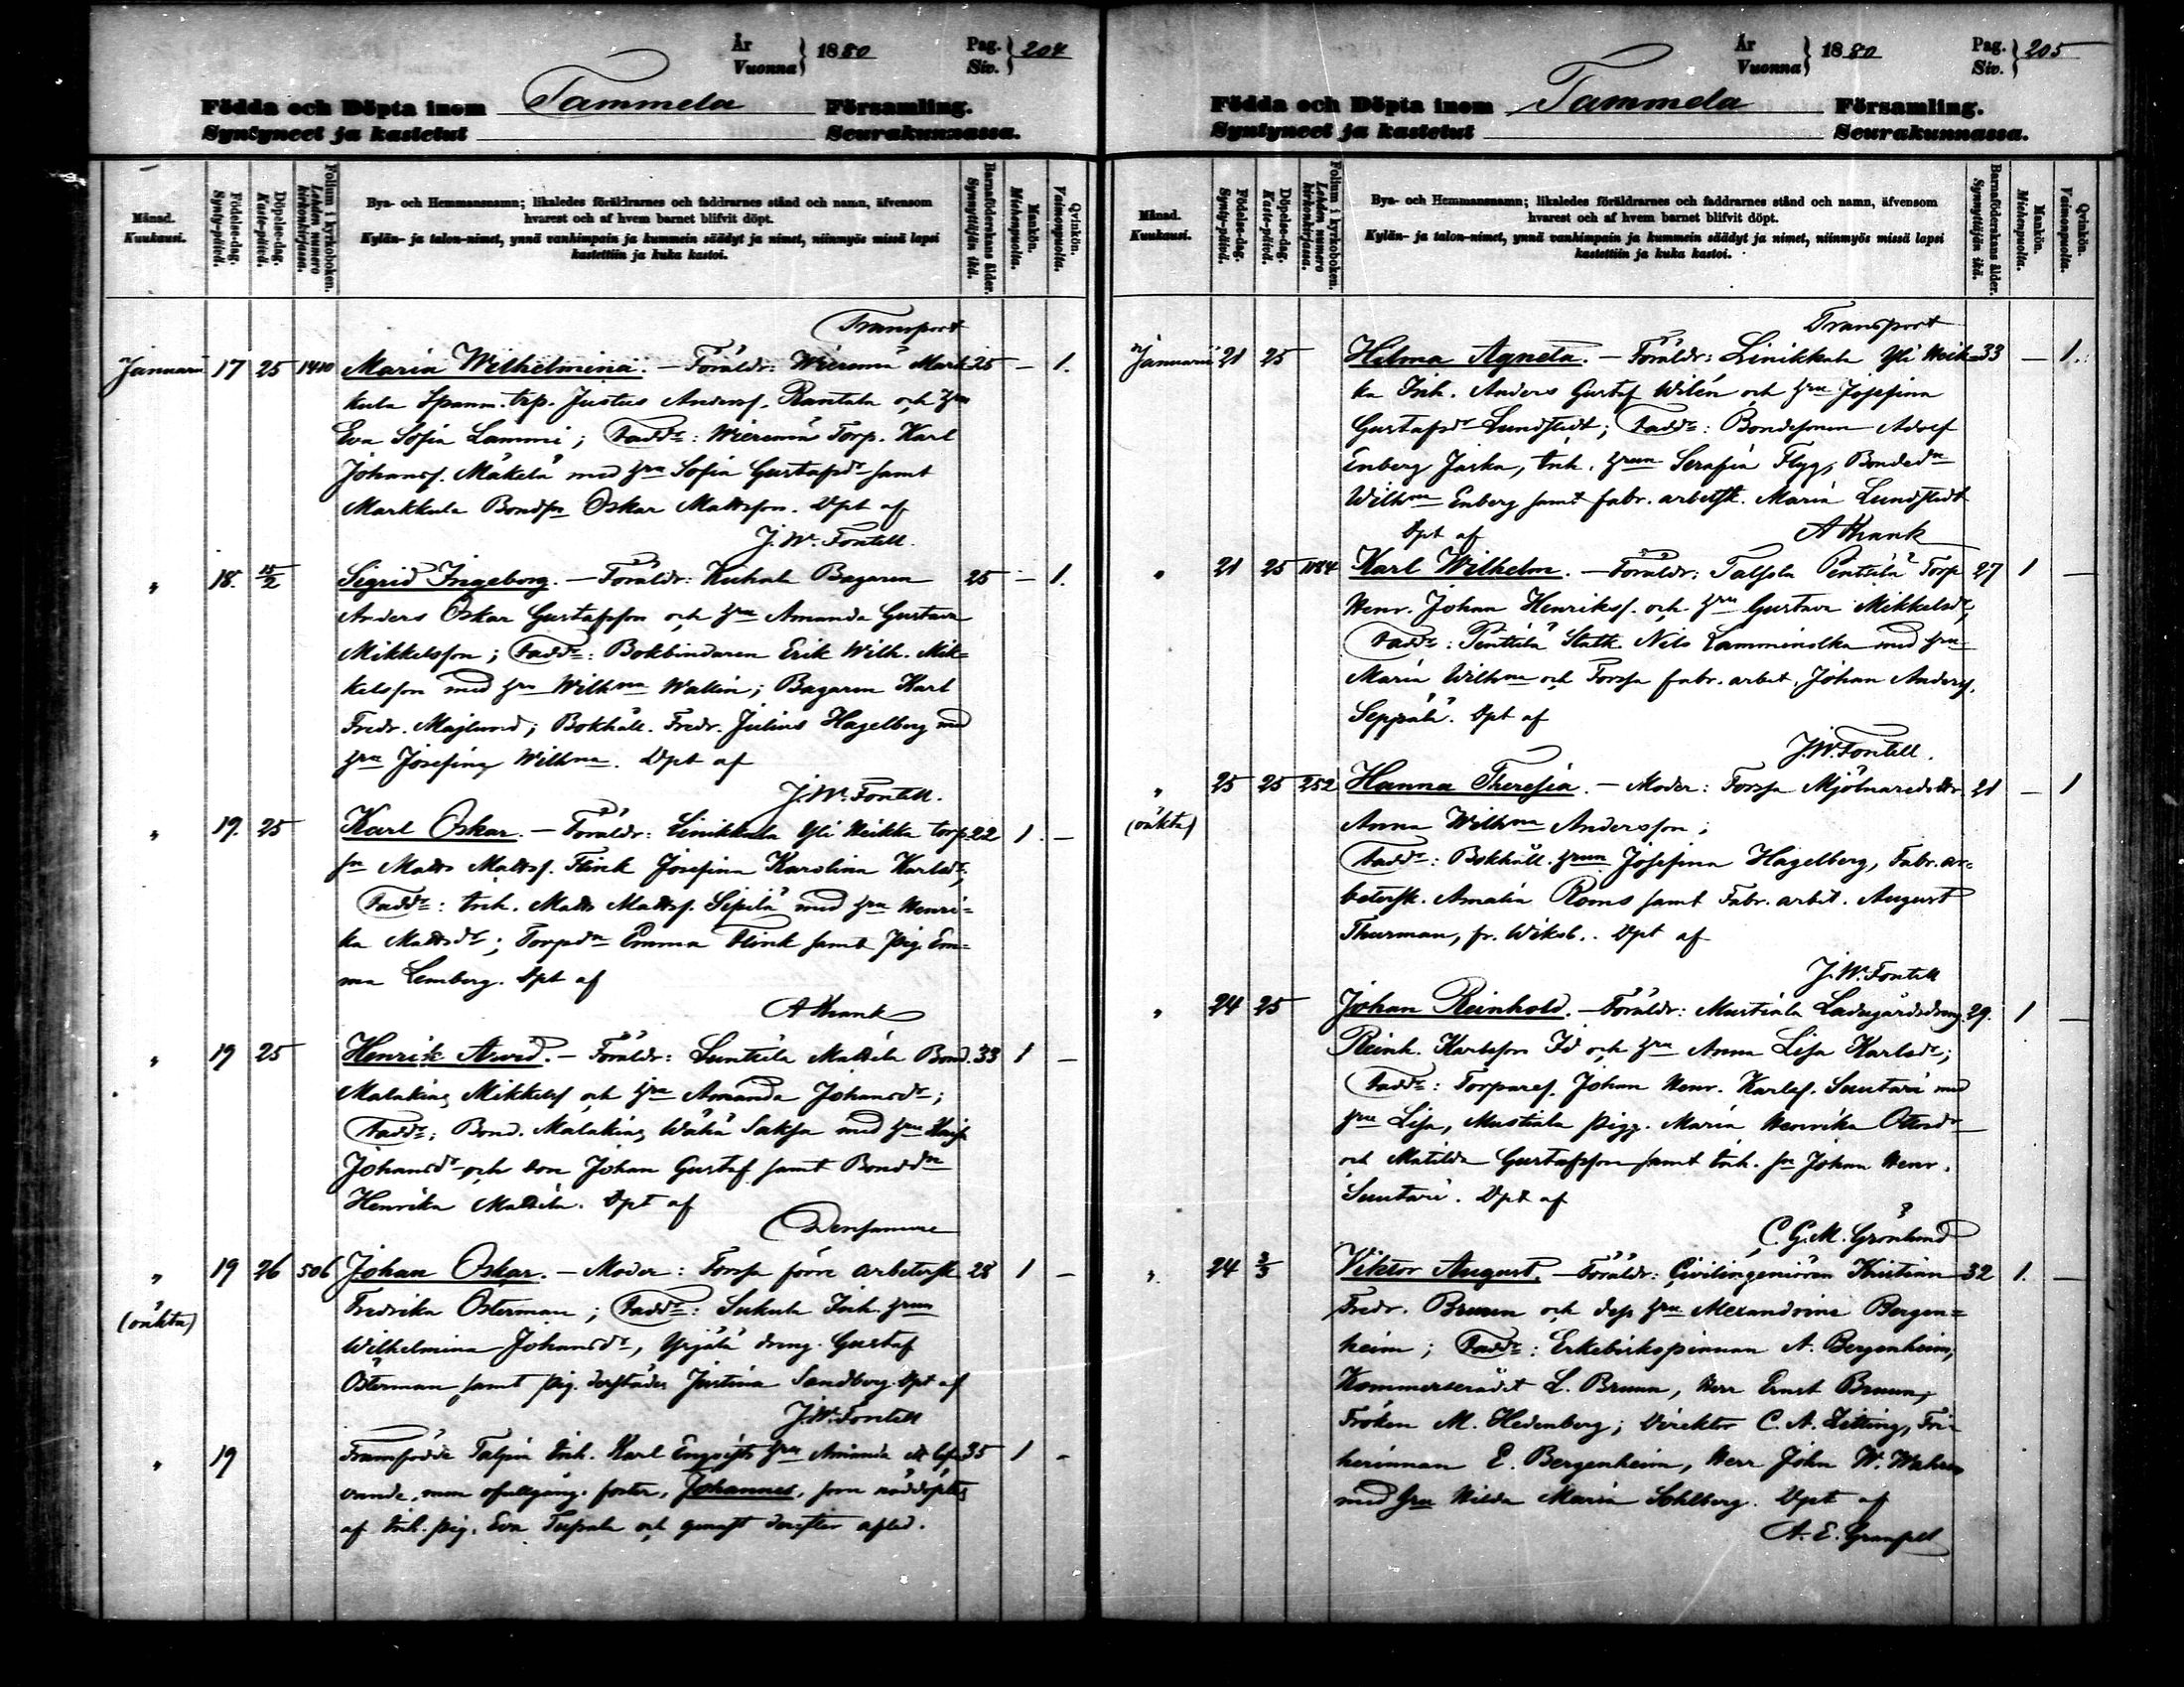 År
Vuonna } 1880
Pag.
Siv. } 204
Födda och Döpta inom Tammela Församling.
Syntyneet ja kastetut Seurakunnassa.
Månad.
Kuukausi.
Födelse-dag.
Synty-päivä.
Döpelse-dag.
Kaste-päivä.
Folium i kyrkoboken.
Lehden numero kirkonkirjassa.
Bya- och Hemmansnamn; likaledes föräldrarnes och faddrarnes stånd och namn, äfvensom
hvarest och af hvem barnet blifvit döpt.
Kylän- ja talon-nimet, ynnä vanhimpain ja kummein säädyt ja nimet, niinmyös missä lapsi
kastettiin ja kuka kastoi.
Barnaföderskans ålder.
Synnyttäjän ikä.
Mankön.
Miehenpuolta.
Qvinkön.
Vaimonpuolta.
Transport
Januari 17 25 1410 Maria Wilhelmina. - Föräldr: Wieremä Mark- 25 - 1.
kula Spanm. trp. Justus Andersf. Rantala och hru
Eva Sofia Lammi; Fadd: Wieremä Torp. Karl
Johansf. Mäkelä med hru Sofia Gustafsdr samt
Markkula Bondsn Oskar Mattsson. Dpt af
J. W. Fontell.
" 18. 15/2 Sigrid Ingeborg. - Föräldr: Kuhala Bagaren 25 - 1.
Anders Oskar Gustafsson och hru Amanda Gustava
Mikkelsson; Fadd: Bokbindaren Erik Wilh. Mik=
kelsson med hru Wilhna Wallin; Bagaren Karl
Fredr. Majlund; Bokhåll. Fredr. Julius Hagelberg med
hru Josefina Wilhna. Dpt af
J. W. Fontell.
" 19. 25 Karl Oskar. - Föräldr: Linikkala Yli Heikka torp- 22 1. -
sn Matts Mattsf. Flink Josefina Karolina Karlsdr;
Fadd: Inh. Matts Mattsf. Sipilä med hru Henri=
ka Mattsdr; Torpdn Emma Flink samt pig. Em=
ma Lemberg. Dpt af
A Krank
" 19 25 Henrik Arvid. - Föräldr: Lunkila Mattila Bond. 33 1 -
Malakias Mikkelsf och hru Amanda Johansdr;
Fadd: Bond. Malakias Wähä Saksa med hru
Johansdr och son Johan Gustaf samt Bonddn
Henrika Mattila. Dpt af
Densamme
" 19 26 506 Johan Oskar. - Moder: Forssa förre arbetersk. 28 1 -
(oäkta) Fredrika Österman; Fadd: Sukula Inh. hrun
Wilhelmina Johansdr, Yrjälä dreng. Gustaf
Österman samt pig. derstädes Justina Sandberg. Dpt af
J. W. Fontell
" 19 Framfödde Talpia Inh. Karl Engqvists hru Amanda ett lef- 35 1 -
vande, men ofullgång. foster, Johannes, som nöddöptes
af Inh. pig. Eva Tupala och genast derefter afled.
År
Vuonna } 1880
Pag.
Siv. } 205
Födda och Döpta inom Tammela Församling.
Syntyneet ja kastetut Seurakunnassa.
Månad.
Kuukausi.
Födelse-dag.
Synty-päivä.
Döpelse-dag.
Kaste-päivä.
Folium i kyrkoboken.
Lehden numero kirkonkirjassa.
Bya- och Hemmansnamn; likaledes föräldrarnes och faddrarnes stånd och namn, äfvensom
hvarest och af hvem barnet blifvit döpt.
Kylän- ja talon-nimet, ynnä vanhimpain ja kummein säädyt ja nimet, niinmyös missä lapsi
kastettiin ja kuka kastoi.
Barnaföderskans ålder.
Synnyttäjän ikä.
Mankön.
Miehenpuolta.
Qvinkön.
Vaimonpuolta.
Transport
Januarii 21 25 Hilma Agneta. - Föräldr: Linikkala Yli Heik- 33 - 1.
ka Inh. Anders Gustaf Wilén och hru Josefina
Gustafsdr Lundstedt; Fadd: Bondesonen Adolf
Enberg Jaska, Inh. hrun Serafia Flyg, Bondedn
Wilhna Enberg samt fabr. arbetsk. Maria Lundstedt
Dpt af A Krank
" 21 25 1084 Karl Wilhelm. - Föräldr: Talsola Penttilä Torp 27 1 -
Henr. Johan Henriksf. och hru Gustava Mikkelsdr;
Fadd: Penttilä Statk. Nils Lamminolka med hru
Maria Wilhna och Forssa fabr. arbet. Johan Andersf.
Seppälä. Dpt af
J. W. Fontell.
" 25 25 252 Hanna Theresia. - Moder: Forssa Mjölnaredottr. 21 - 1
(oäkta) Anna Wilhna Andersson;
Fadd: Bokhåll. hrun Josefina Hagelberg, Fabr. ar=
betersk. Amalia Roms samt Fabr. arbet. August
Thurman, fr. Wiksb. Dpt af
J. W. Fontell
" 24 25 Johan Reinhold. - Föräldr: Mustiala Ladugårdsdreng. 29. 1 -
Reinh. Karlsson Id och hru Anna Lisa Karlsdr;
Fadd: Torparef. Johan Henr. Karlsf. Suutari med
hru Lisa, Mustiala pigg. Maria Henrika Ottosdr
och Matilda Gustafsson samt Inh. sn Johan Henr.
Suutari. Dpt af
C. G. M. Grönlund
" 24 3/3 Viktor August. - Föräldr: Civilingeniören Kristian 32 1. -
Fredr. Bruun och dess hru Alexandrine Bergen=
heim; Fadd: Erkebiskopinnan A. Bergenheim,
Kommerserådet L. Bruun, Herr Ernst Bruun,
Fröken M. Hedenberg; Direktor C. A. Zitting, Fri=
herinnan E. Bergenheim, Herr John W. Wahren
med hru Hilda Maria Sohlberg. Dpt af
A. E. Granfelt